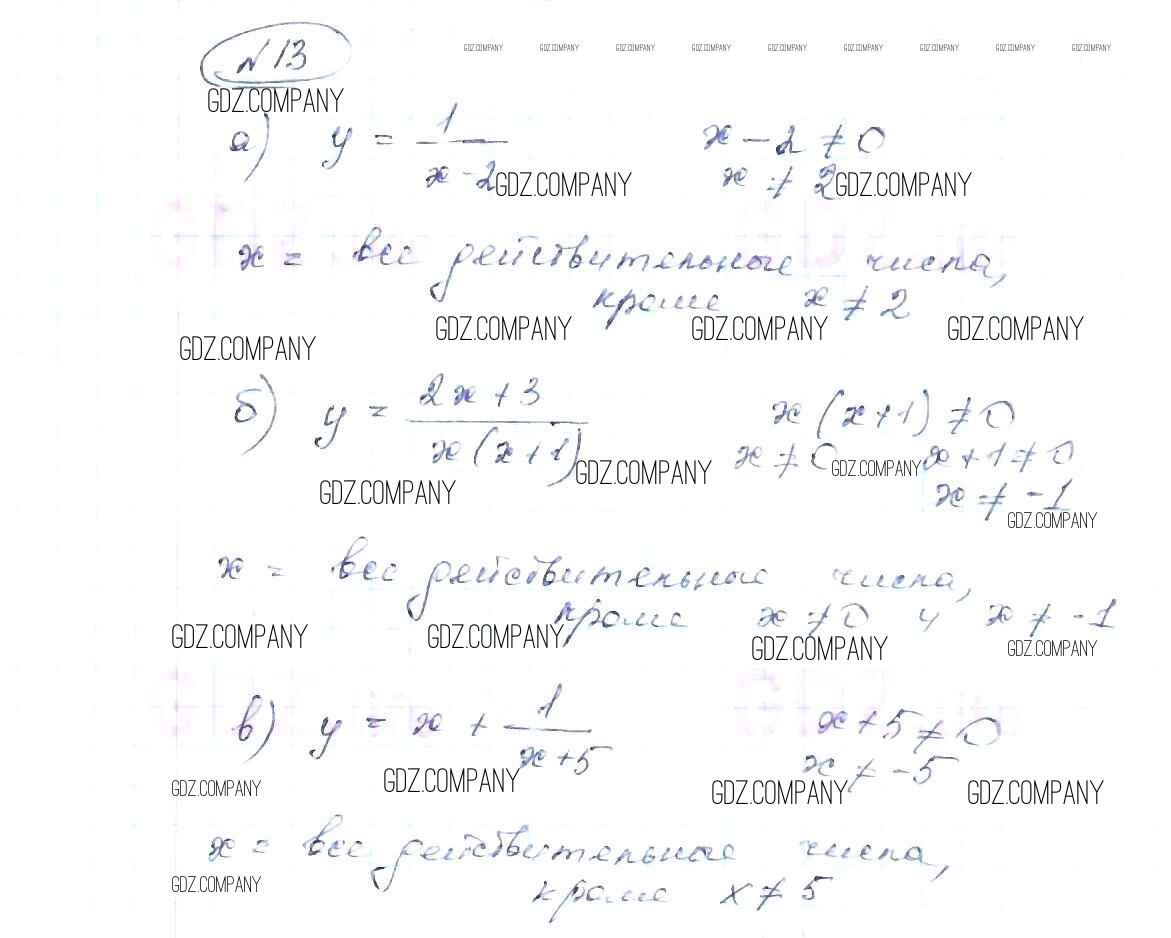 № 13
GDZ.COMPANY GDZ.COMPANY GDZ.COMPANY GDZ.COMPANY GDZ.COMPANY GDZ.COMPANY GDZ.COMPANY GDZ.COMPANY GDZ.COMPANY
GDZ.COMPANY
а) y = 1 / x - 2 x - 2 ≠ 0
GDZ.COMPANY x ≠ 2 GDZ.COMPANY
x = все действительные числа,
кроме x ≠ 2
GDZ.COMPANY GDZ.COMPANY GDZ.COMPANY GDZ.COMPANY
б) y = 2x + 3 / x(x+1) x(x+1) ≠ 0
GDZ.COMPANY x ≠ 0 GDZ.COMPANY x + 1 ≠ 0
GDZ.COMPANY x ≠ -1
GDZ.COMPANY
x = все действительные числа,
кроме x ≠ 0 и x ≠ -1
GDZ.COMPANY GDZ.COMPANY GDZ.COMPANY GDZ.COMPANY
в) y = x + 1 / x+5 x+5 ≠ 0
x ≠ -5
GDZ.COMPANY GDZ.COMPANY GDZ.COMPANY GDZ.COMPANY
x = все действительные числа,
GDZ.COMPANY кроме x ≠ 5